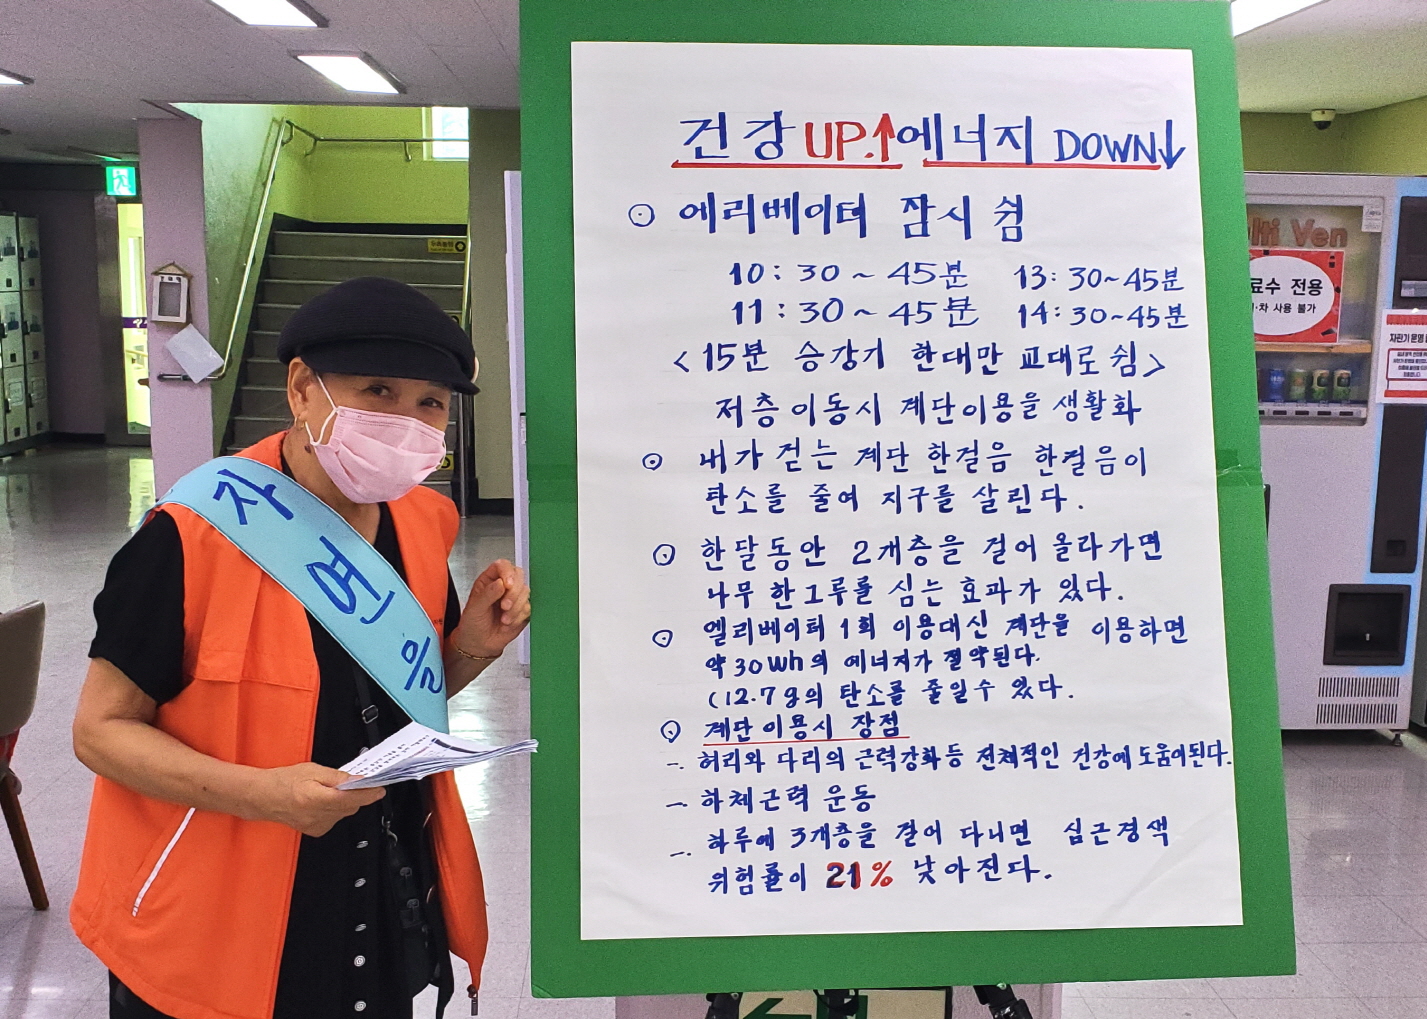 건강 UP.↑ 에너지 DOWN↓
⊙ 에리베이터 잠시 쉼
10:30~45분 13:30~45분
11:30~45분 14:30~45분
<15분 승강기 한대만 교대로 쉼>
저층이동시 계단이용을 생활화
⊙ 내가 걷는 계단 한걸음 한걸음이
탄소를 줄여 지구를 살린다.
⊙ 한달동안 2개층을 걸어 올라가면
나무 한그루를 심는 효과가 있다.
⊙ 엘리베이터 1회 이용대신 계단을 이용하면
약 30Wh의 에너지가 절약된다.
(12.7g의 탄소를 줄일수 있다.
⊙ 계단이용시 장점
-. 허리와 다리의 근력강화등 전체적인 건강에 도움이된다.
-. 하체근력 운동
-. 하루에 3개층을 걸어 다니면 심근경색
위험률이 21% 낮아진다.
자연을
lti Ven
료수 전용
차 사용 불가